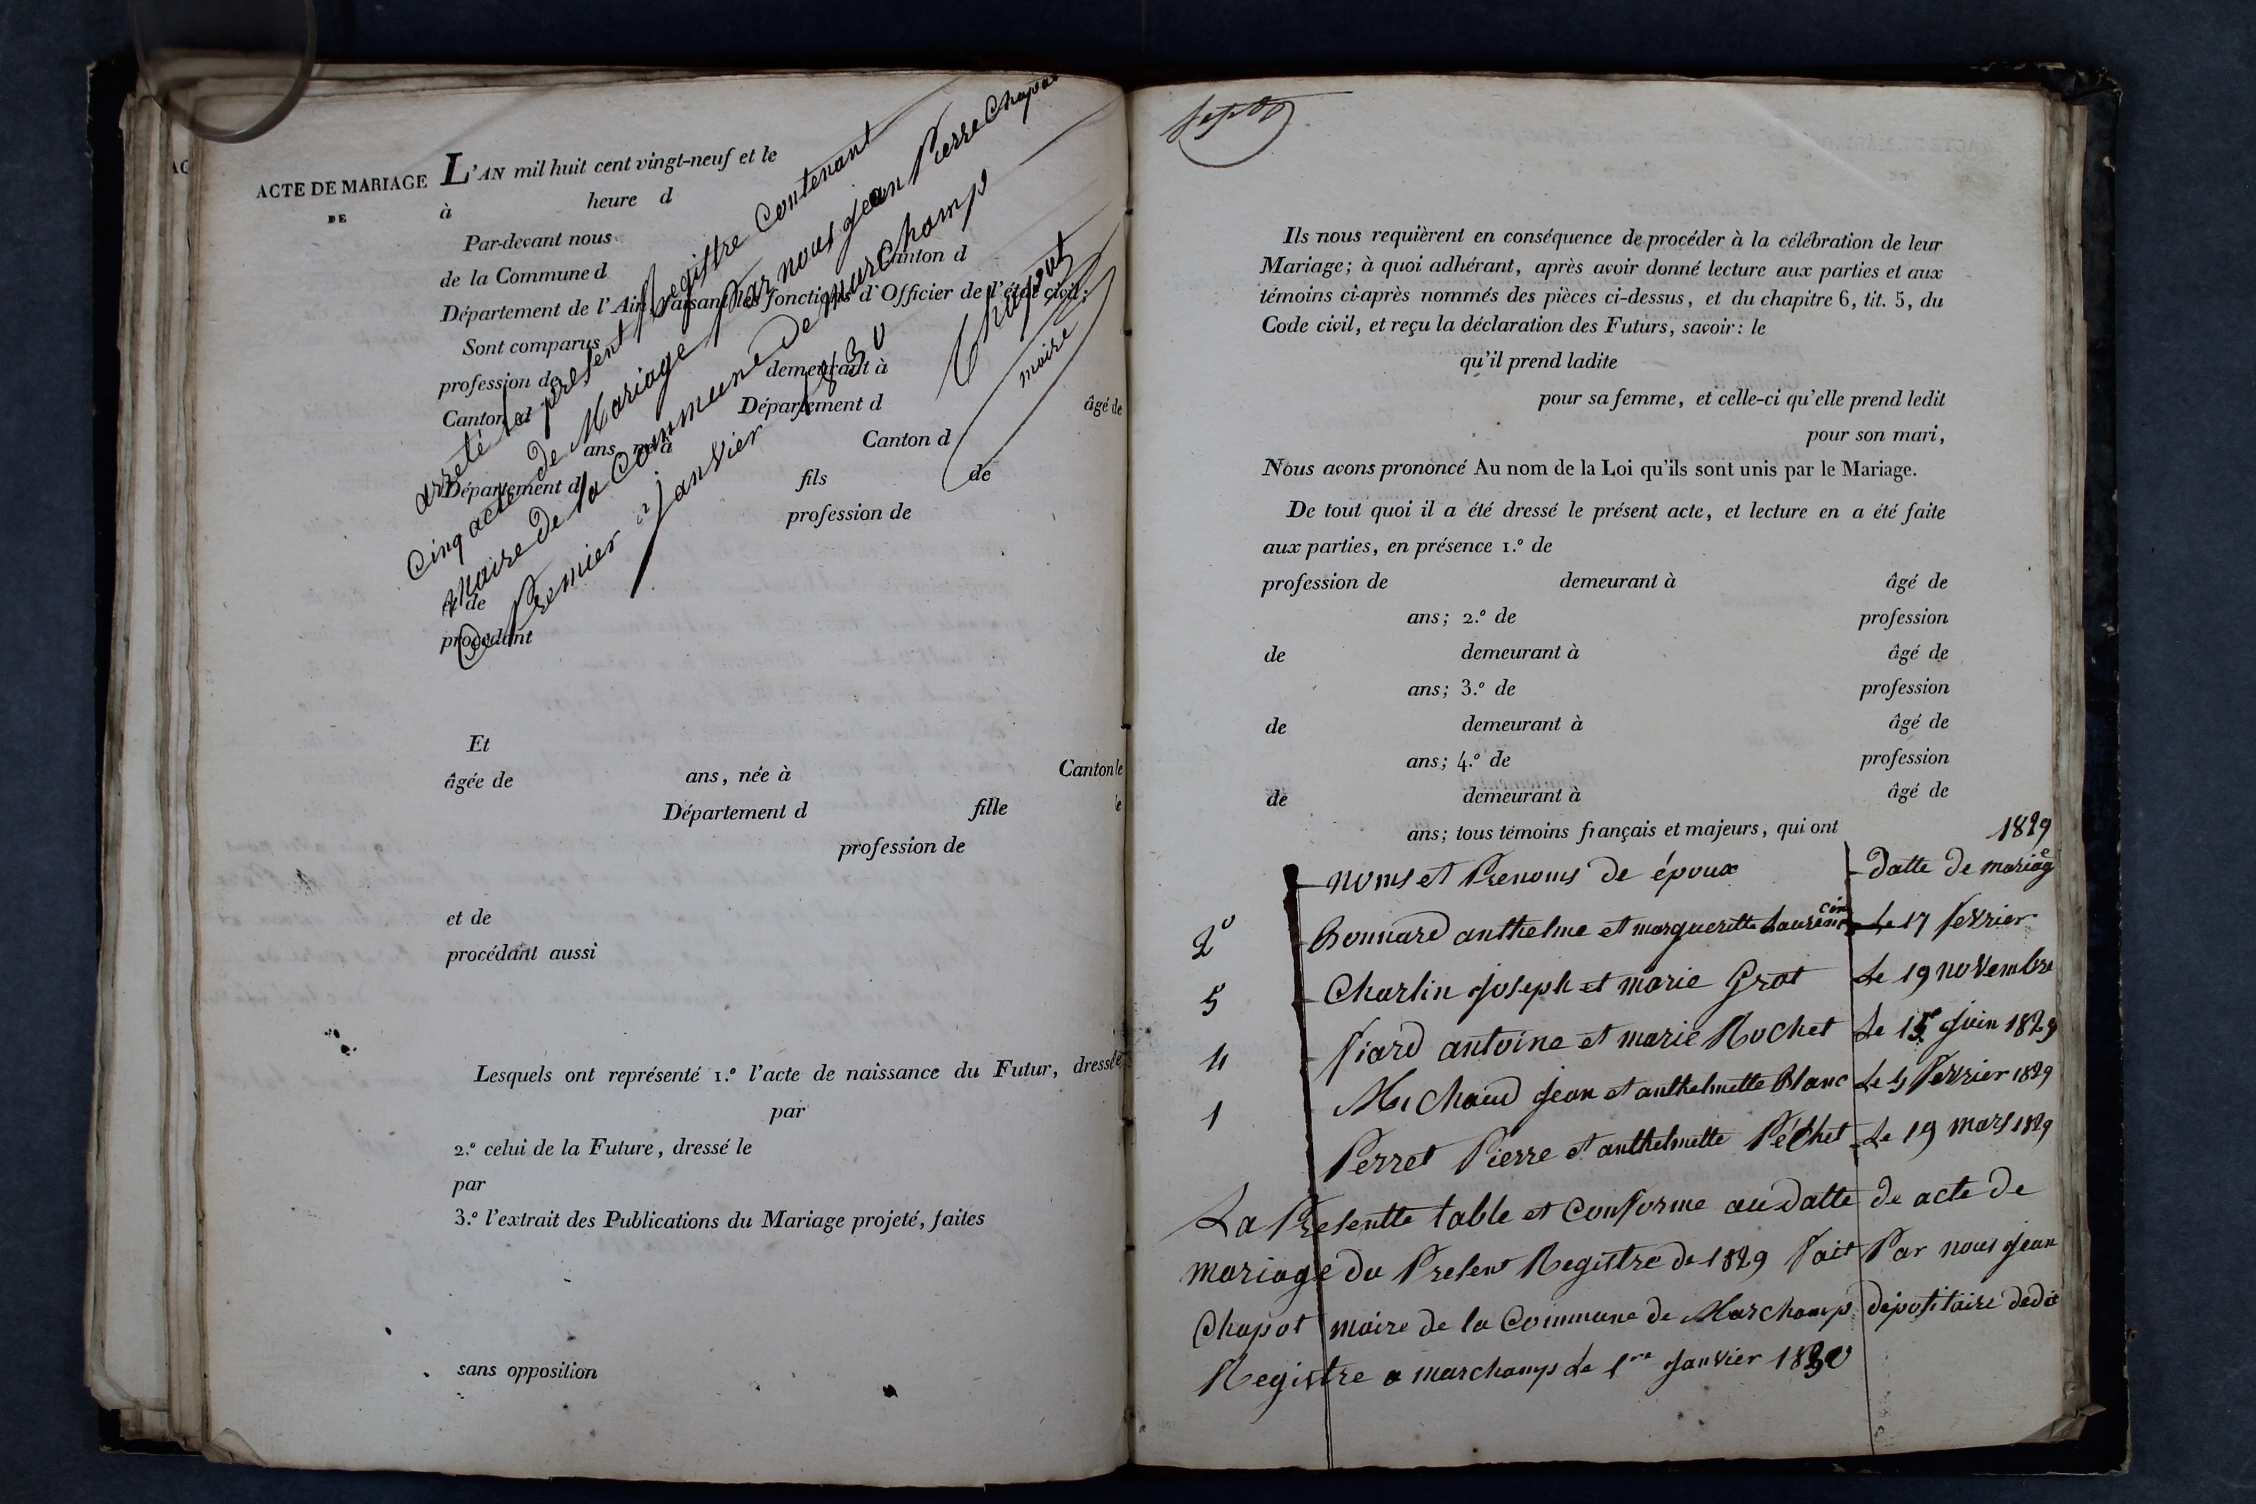 ACTE DE MARIAGE
DE
L'AN mil huit cent vingt-neuf et le
à heure d
Par-devant nous
de la Commune d Canton d
Département de l'Ain, faisant les fonctions d'Officier de l'état civil;
Sont comparus
profession de demeurant à
Canton d Département d âgé de
ans, né à Canton d
Département d fils de
profession de
et de
procédant
arreté le present registre Contenant
Cinq acte de Mariage par nous jean Pierre Chapot
Maire de la Commune de Marchamp
Ce Premier janvier 1830
Chapot
maire
Et
âgée de ans, née à Canton
Département d fille
profession de
et de
procédant aussi
Lesquels ont représenté 1.º l'acte de naissance du Futur, dressé
par
2.º celui de la Future, dressé le
par
3.º l'extrait des Publications du Mariage projeté, faites
sans opposition
Ils nous requièrent en conséquence de procéder à la célébration de leur
Mariage; à quoi adhérant, après avoir donné lecture aux parties et aux
témoins ci-après nommés des pièces ci-dessus, et du chapitre 6, tit. 5, du
Code civil, et reçu la déclaration des Futurs, savoir: le
qu'il prend ladite
pour sa femme, et celle-ci qu'elle prend ledit
pour son mari,
Nous avons prononcé Au nom de la Loi qu'ils sont unis par le Mariage.
De tout quoi il a été dressé le présent acte, et lecture en a été faite
aux parties, en présence 1.º de
profession de demeurant à âgé de
ans; 2.º de profession
de demeurant à âgé de
ans; 3.º de profession
de demeurant à âgé de
ans; 4.º de profession
de demeurant à âgé de
ans; tous témoins français et majeurs, qui ont
1829
noms et Prenoms de époux datte de mariage
2º Bonnard anthelme et margueritte Laurencin Le 17 fevrier
5 Charlin joseph et marie Grat Le 19 novembre
4 fiard antoine et marie Rochet Le 15 juin 1829
1 Michaud jean et anthelmette Blanc Le 5 fevrier 1829
Perret Pierre et anthelmette Péchet Le 19 mars 1829
La Presentte table et Conforme au datte de acte de
mariage du Present Registre de 1829 fait Par nous jean
Chapot maire de la Commune de Marchamp dépositaire dedit
Registre a marchamp Le 1re janvier 1830